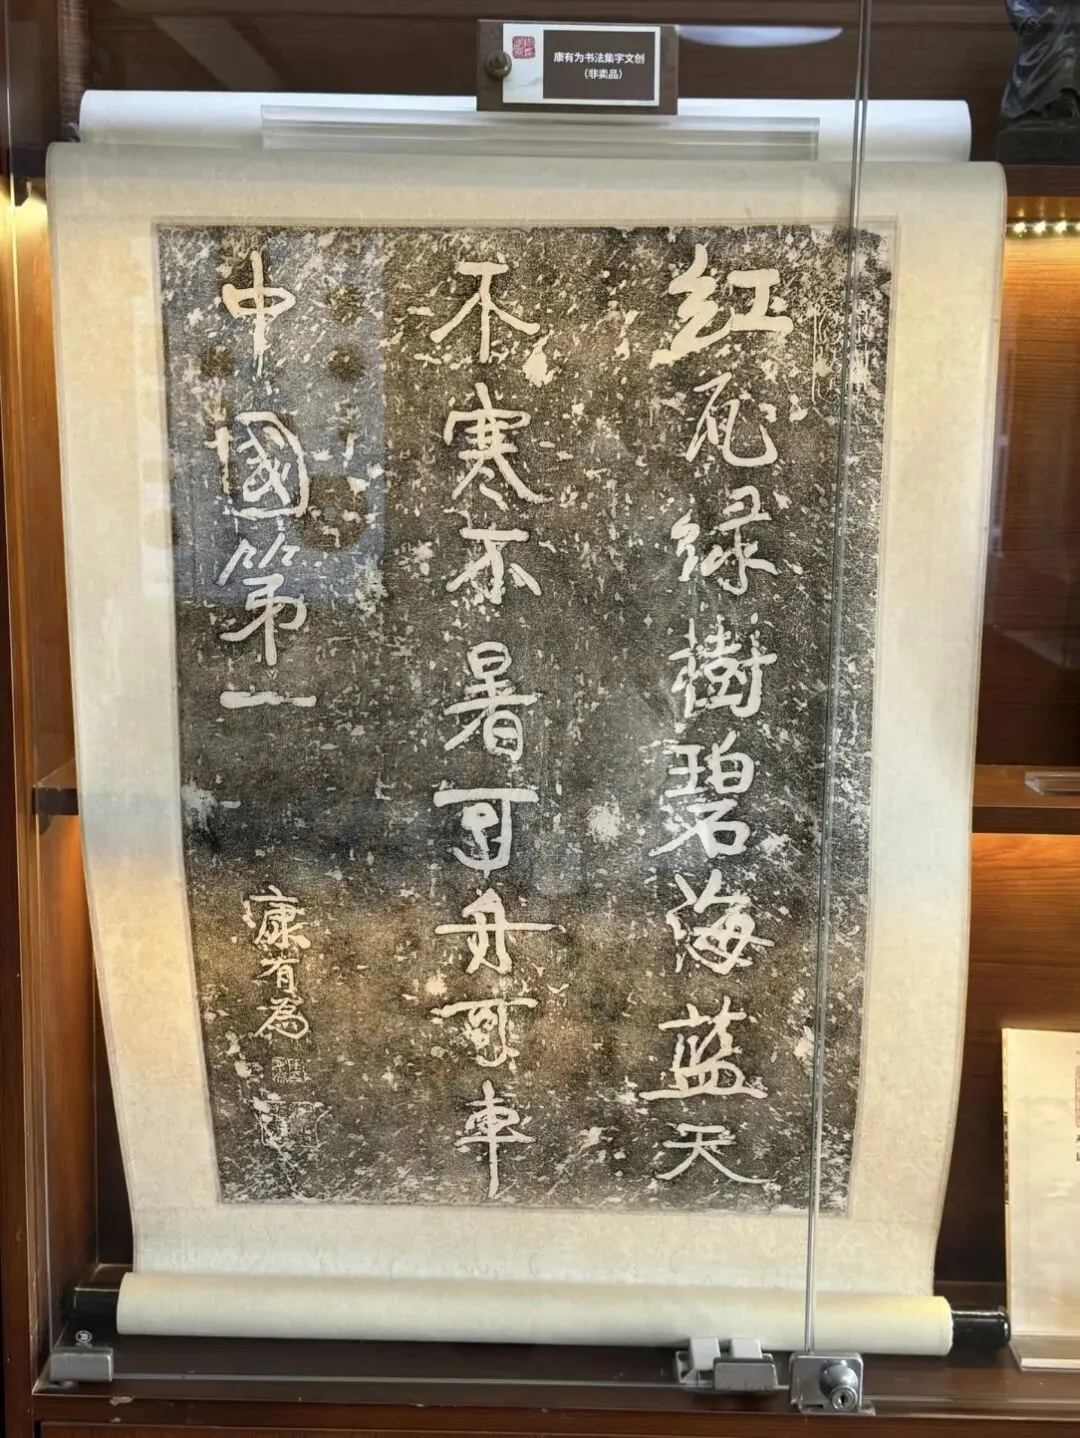 康有为书法集字文创
（非卖品）
红瓦绿樹碧海蓝天
不寒不暑可舟可車
中國第一
康有為